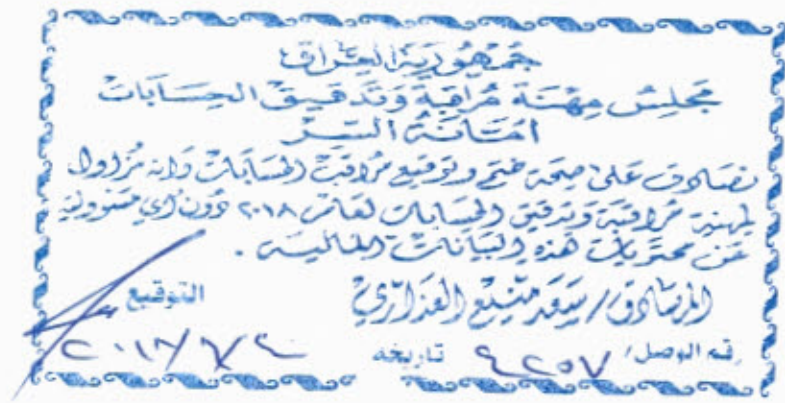 جمهورية العراق
مجلس مهنة مراقبة وتدقيق الحسابات
امانة السر
نصادق على صحة ختم وتوقيع مراقب الحسابات وانه مزاول
لمهنة مراقبة وتدقيق الحسابات لعام ٢٠١٨ دون اي مسؤولية
عن محتويات هذه البيانات المالية .
المصادق / سعد منيع العذاري التوقيع
رقم الوصل / ٤٢٥٧ تاريخه